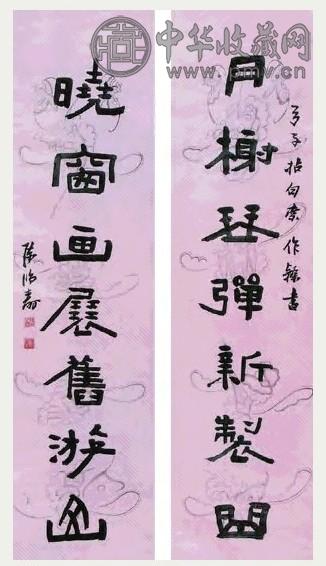 中华收藏网
www.sc001.com.cn
月榭琴彈新製曲
拈句索作隸書
曉窗画展舊游山
陳鴻壽